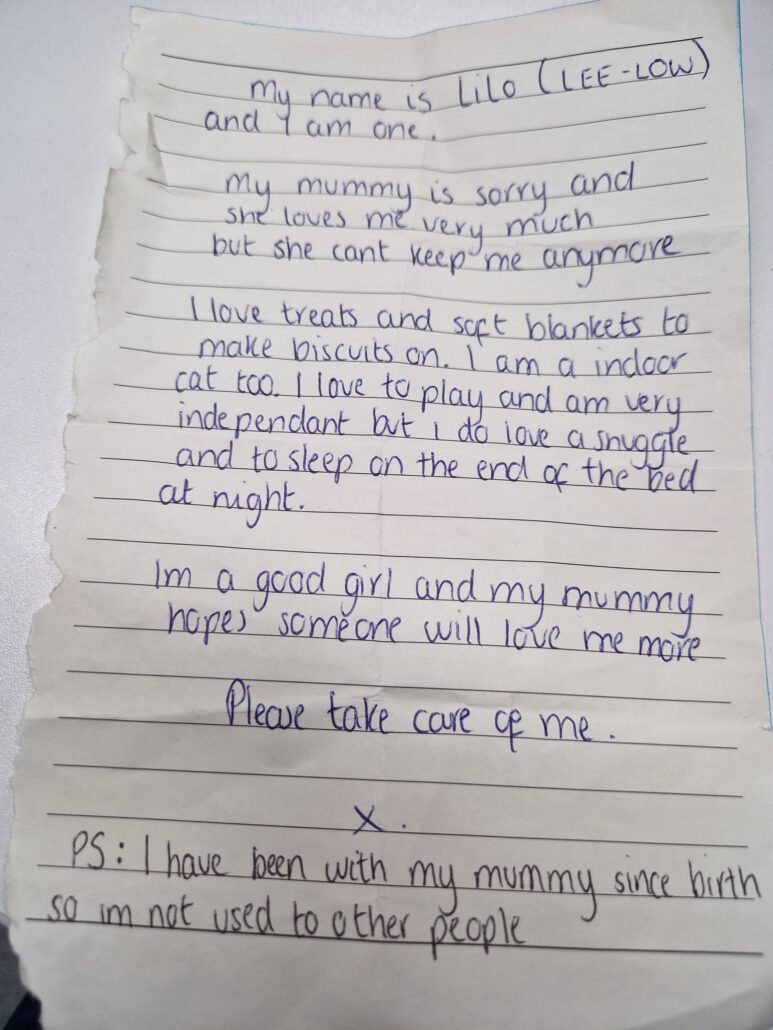 My name is Lilo (LEE-LOW)
and I am one.
My mummy is sorry and
she loves me very much
but she cant keep me anymore
I love treats and soft blankets to
make biscuits on. I am a indoor
cat too. I love to play and am very
independant but i do love a snuggle
and to sleep on the end of the bed
at night.
Im a good girl and my mummy
hopes someone will love me more
Please take care of me.
X.
PS: I have been with my mummy since birth
so im not used to other people